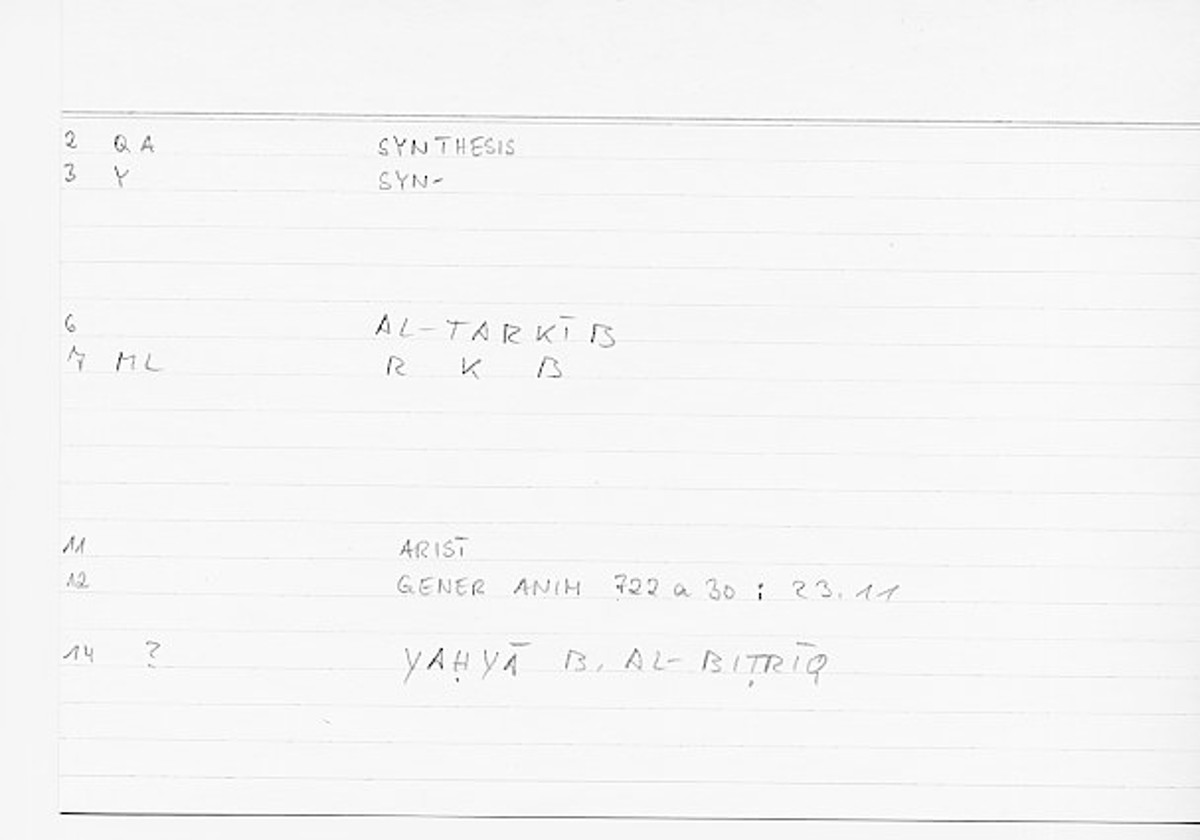 2 QA SYNTHESIS
3 Y SYN-
6 AL-TARKĪB
7 ML R K B
11 ARIST
12 GENER ANIM 722 a 30 : 23.11
14 ? YAḤYĀ B. AL-BIṬRĪQ